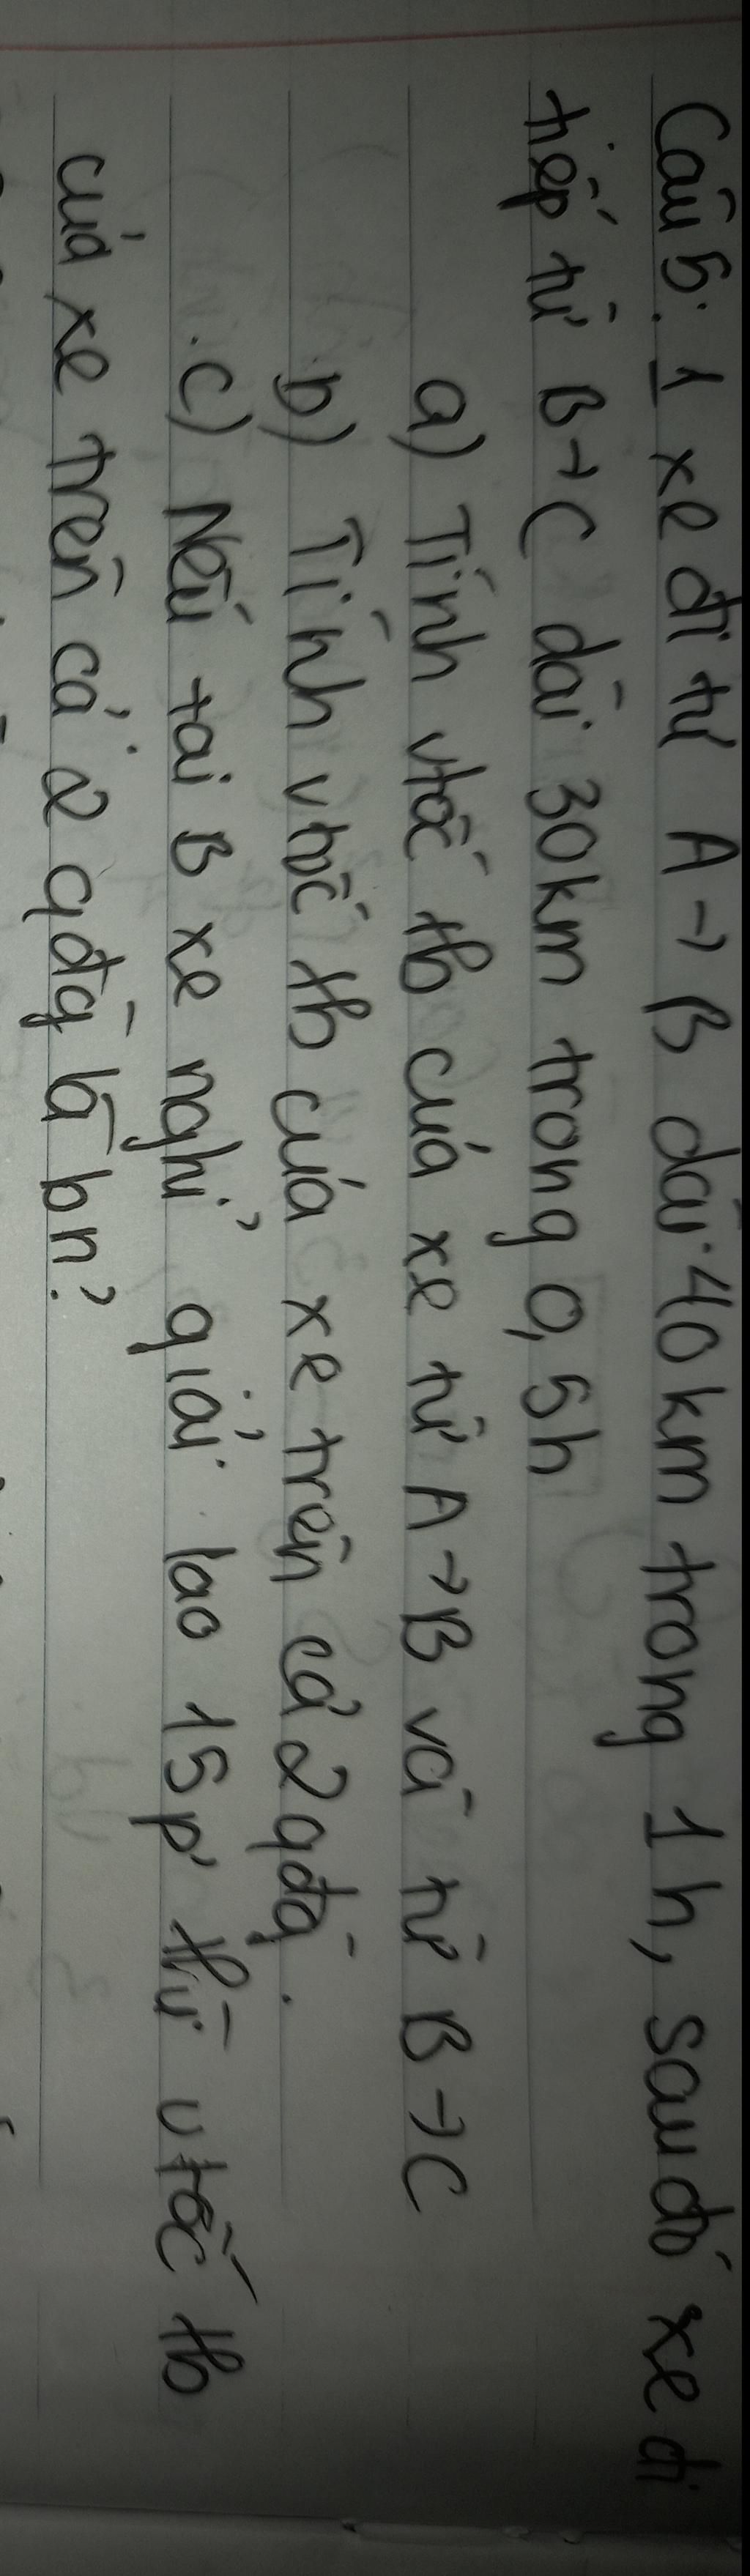 Câu 5: 1 xe đi từ A→B dài 40km trong 1h, sau đó xe đi
tiếp từ B→C dài 30km trong 0,5h
a) Tính vtốc tb của xe từ A→B và từ B→C
b) Tính vtốc tb của xe trên cả 2 qđg.
c) Nếu tại B xe nghỉ giải lao 15p' thì vtốc tb
của xe trên cả 2 qđg là bn?